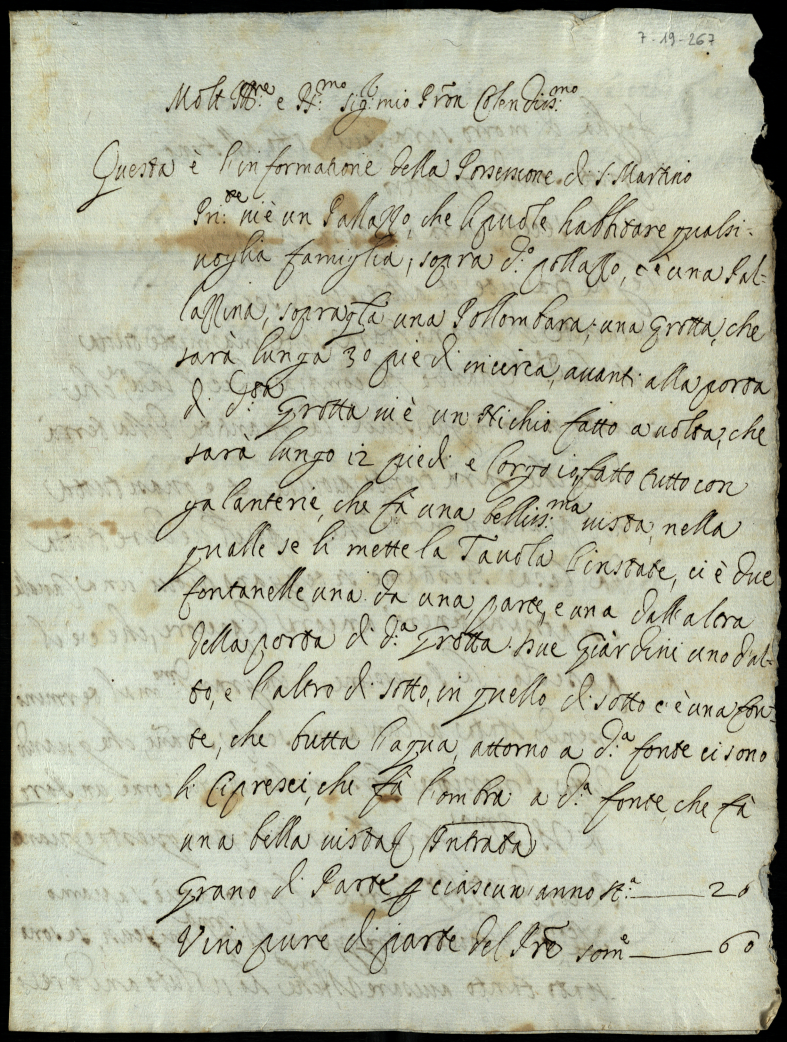 7-19-267
Molt Ill.re e R.mo Sig.r mio Pron Colendiss.mo
Questa è l'informatione della Possessione di S. Martino
Pri:te vi è un Pallazzo, che si puole habbitare qualsi-
voglia famiglia, sopra d.o pallazzo, c'è una Pal-
lazzina, sopra q.ta una Pollombara, una grotta, che
sarà lunga 30 piedi incirca, avanti alla porta
di d.ta Grotta vi è un Nichio fatto a volta, che
sarà lungo 12 piedi, e largo 10 fatto tutto con
galanterie, che fà una belliss.ma vista, nella
qualle se li mette la Tavola l'instate, ci è due
fontanelle una da una parte, e una dall'altra
della porta di d.a Grotta. Due Giardini uno d'al-
to, e l'altro di sotto, in quello di sotto c'è una fon-
te, che butta l'aqua, attorno a d.a fonte ci sono
li Cipressi, che fà l'ombra a d.a fonte, che fà
una bella vista Intrata
Grano di Parte p ciascun anno st.a —— 20
Vino pure di parte del Prōe som.e —— 60